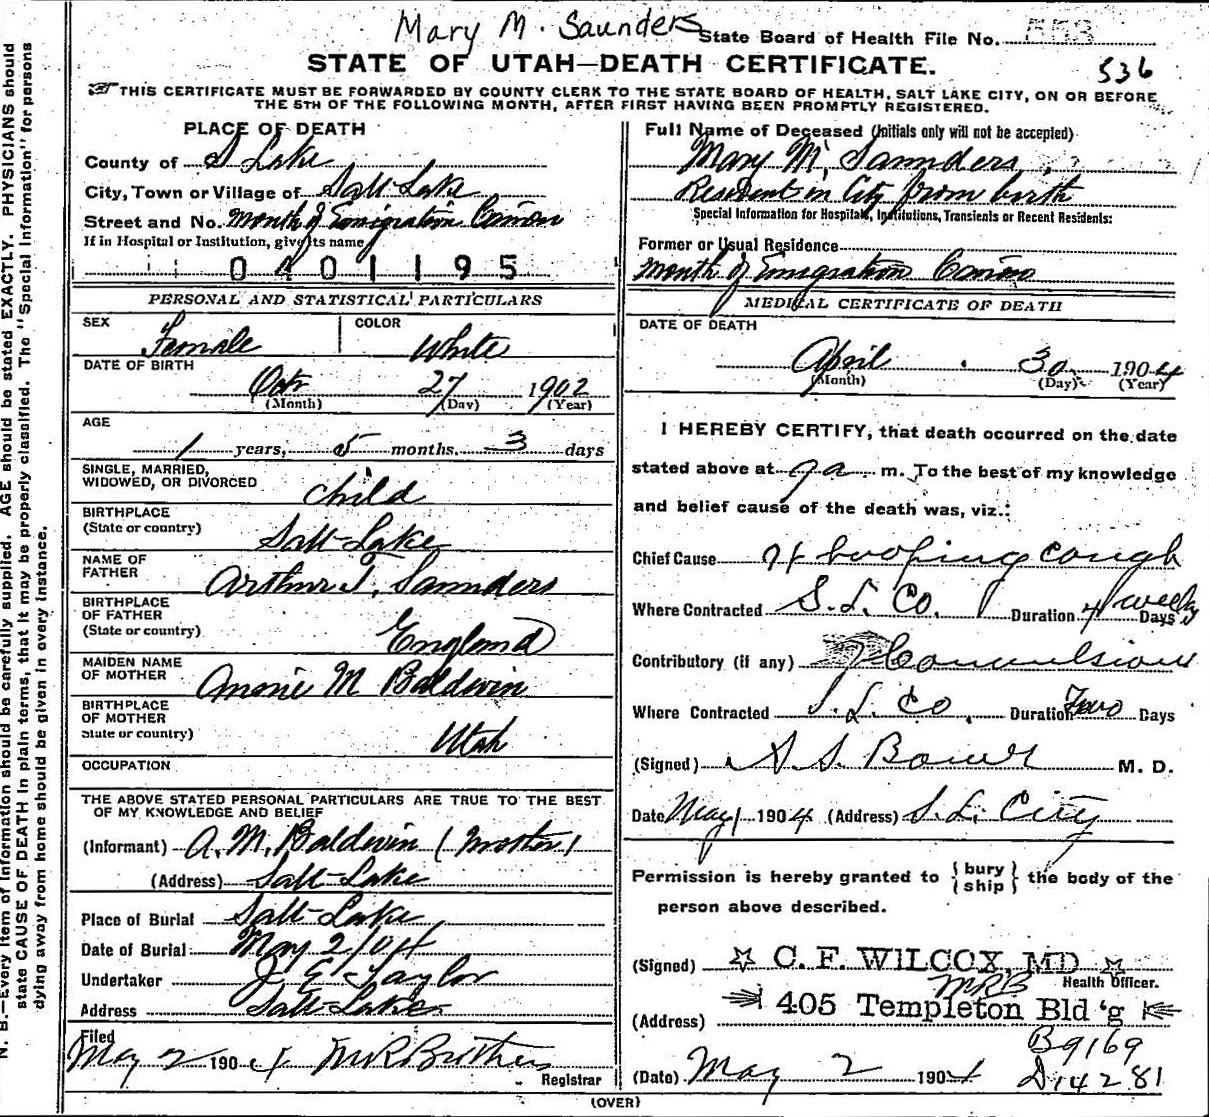 Mary M. Saunders
State Board of Health File No. 553
536
STATE OF UTAH—DEATH CERTIFICATE.
THIS CERTIFICATE MUST BE FORWARDED BY COUNTY CLERK TO THE STATE BOARD OF HEALTH, SALT LAKE CITY, ON OR BEFORE
THE 5TH OF THE FOLLOWING MONTH, AFTER FIRST HAVING BEEN PROMPTLY REGISTERED.
PLACE OF DEATH
County of S Lake
City, Town or Village of Salt Lake
Street and No. Mouth of Emigration Canion
If in Hospital or Institution, give its name
0401195
PERSONAL AND STATISTICAL PARTICULARS
SEX Female COLOR White
DATE OF BIRTH
Oct 27 1902
(Month) (Day) (Year)
AGE
1 years, 5 months. 3 days
SINGLE, MARRIED,
WIDOWED, OR DIVORCED child
BIRTHPLACE
(State or country) Salt Lake
NAME OF
FATHER Arthur T. Saunders
BIRTHPLACE
OF FATHER
(State or country) England
MAIDEN NAME
OF MOTHER Annie M Baldwin
BIRTHPLACE
OF MOTHER
State or country) Utah
OCCUPATION
THE ABOVE STATED PERSONAL PARTICULARS ARE TRUE TO THE BEST
OF MY KNOWLEDGE AND BELIEF
(Informant) A. M. Baldwin (Mother)
(Address) Salt Lake
Place of Burial Salt Lake
Date of Burial May 2/04
Undertaker J E Taylor
Address Salt Lake
Filed
May 2 1904
Registrar
Full Name of Deceased (Initials only will not be accepted)
Mary M. Saunders
Resident in City from birth
Special Information for Hospitals, Institutions, Transients or Recent Residents:
Former or Usual Residence
Mouth of Emigration Canion
MEDICAL CERTIFICATE OF DEATH
DATE OF DEATH
April 30 1904
(Month) (Day) (Year)
I HEREBY CERTIFY, that death occurred on the date
stated above at 9 a m. To the best of my knowledge
and belief cause of the death was, viz.:
Chief Cause Whooping cough
Where Contracted S. L. Co. Duration 4 weeks Days
Contributory (if any) Convulsions
Where Contracted S. L. Co. Duration Two Days
(Signed) M. D.
Date May 1 1904 (Address) S. L. City
Permission is hereby granted to { bury ship } the body of the
person above described.
(Signed) C. F. WILCOX, MD
MRB Health Officer.
(Address) 405 Templeton Bld'g
B9169
(Date) May 2 1904 D14281
(OVER)
N. B.—Every item of information should be carefully supplied. AGE should be stated EXACTLY. PHYSICIANS should
state CAUSE OF DEATH in plain terms, that it may be properly classified. The "Special Information" for persons
dying away from home should be given in every instance.